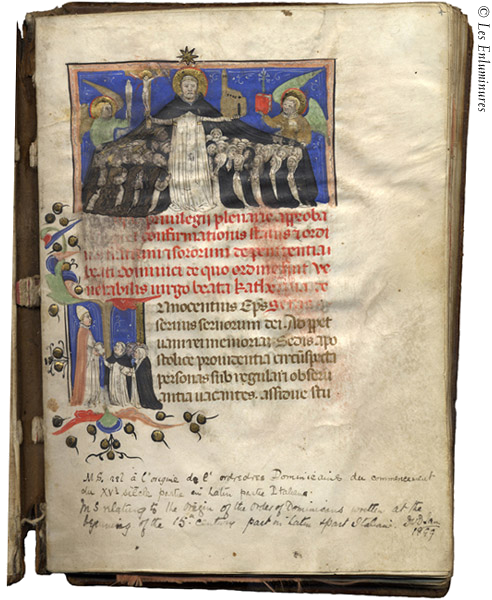 privilegii plenarie approba
confirmationis status et ordi
sororum de penitentia
beati dominici de quo ordine fuit ve
nerabilis virgo beata Kathe de
nnocentius Eps
servus servorum dei. Ad ppet
uam rei memoriam Sedis apo
stolice providentia circuspecta
personas sub regulari observ
antia vacantes. assidue stu
MS. à l'origine de l' ordre Dominicains du commencement
du XVe siècle partie en Latin partie Italiano.
MS relating to the origin of the Order of Dominicans written at the
beginning of the 15th century part in Latin & part Italian.
© Les Enluminures